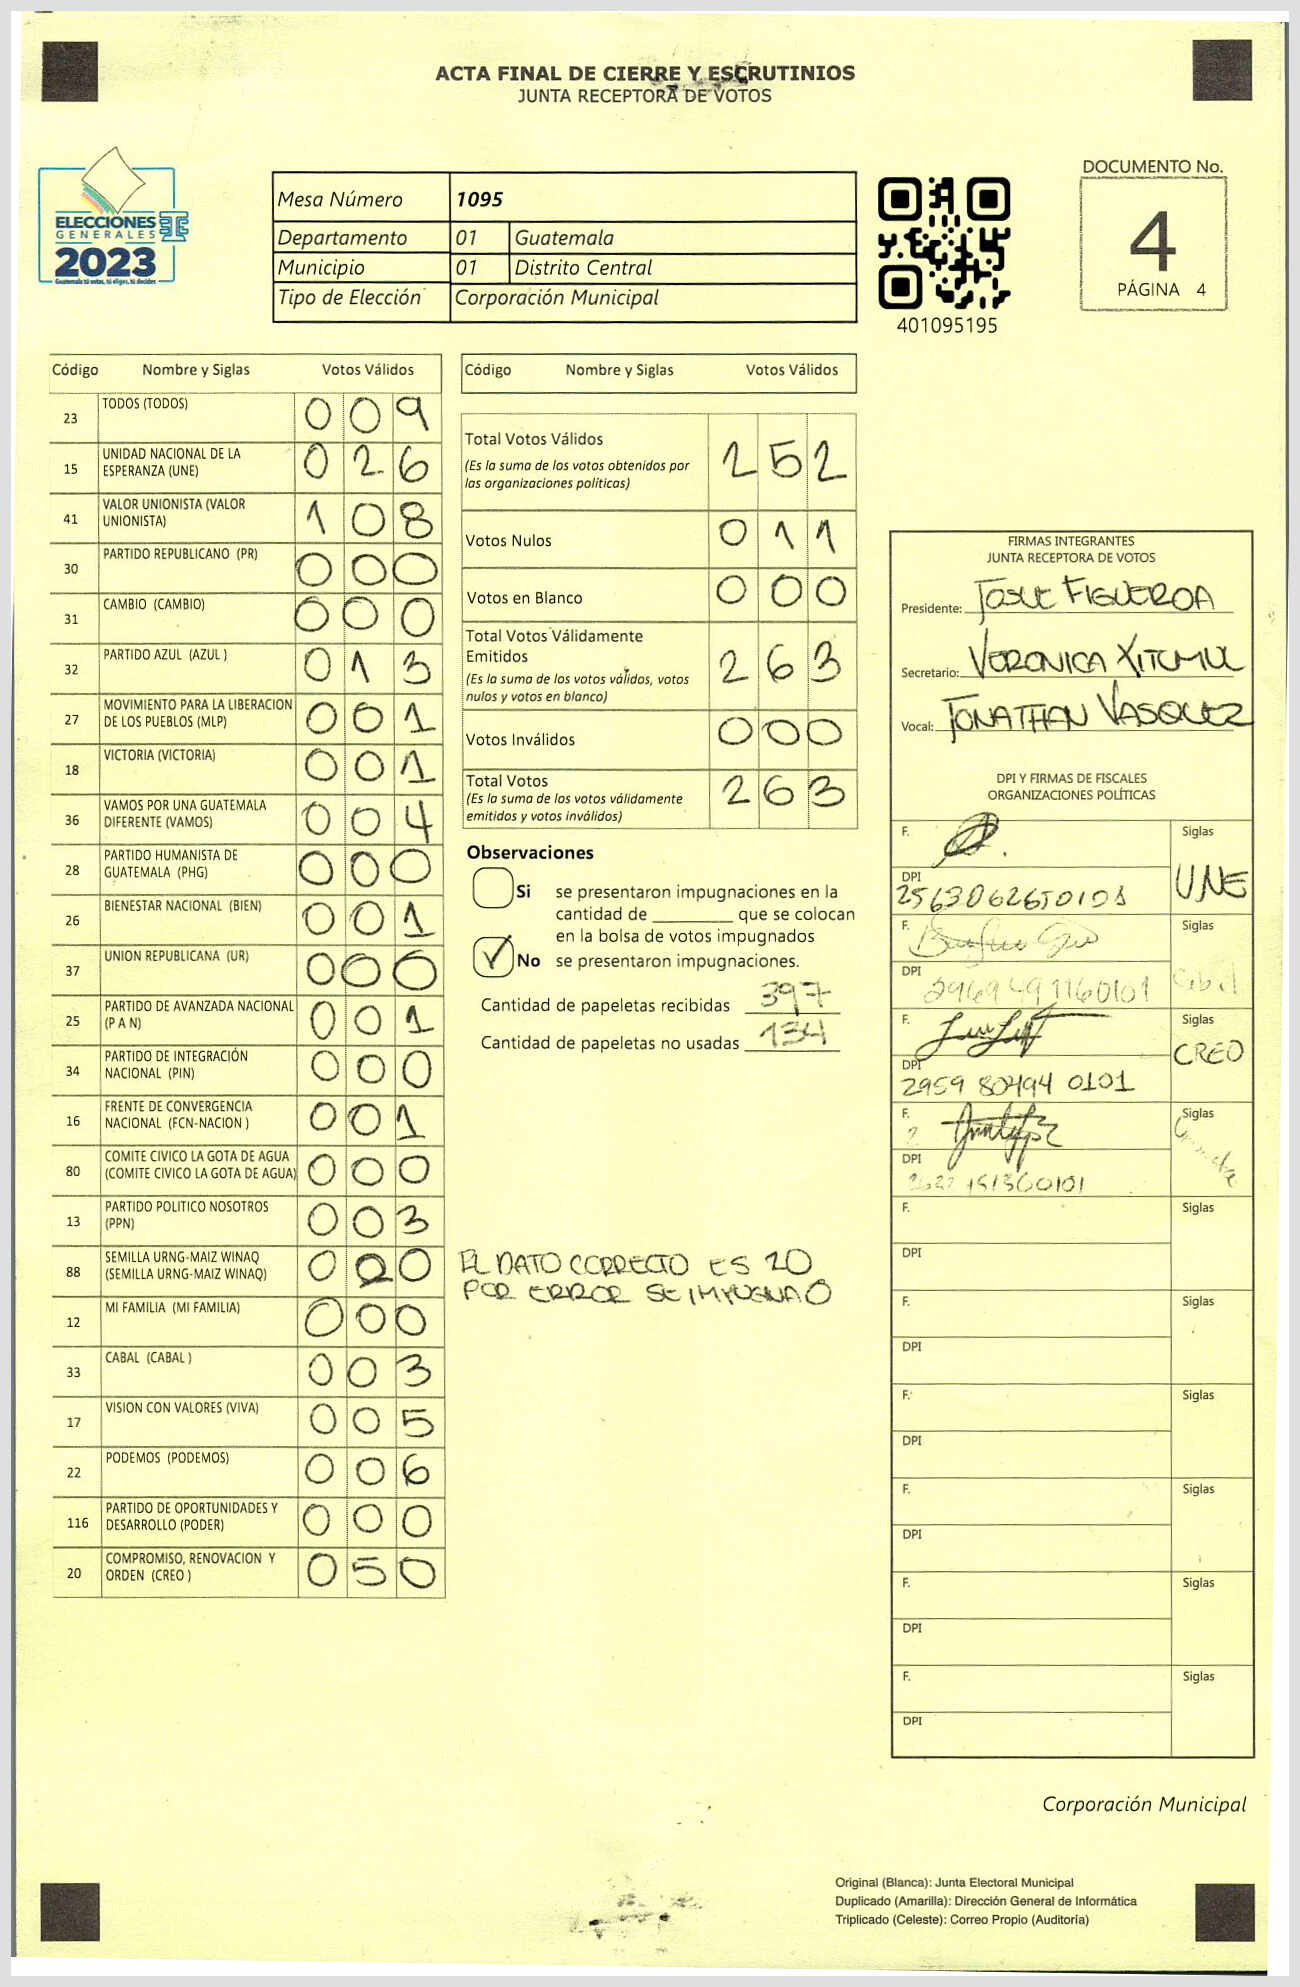 ACTA FINAL DE CIERRE Y ESCRUTINIOS
JUNTA RECEPTORA DE VOTOS
ELECCIONES
GENERALES
2023
Guatemala tú votas, tú eliges, tú decides
Mesa Número 1095
Departamento 01 Guatemala
Municipio 01 Distrito Central
Tipo de Elección Corporación Municipal
401095195
DOCUMENTO No.
4
PÁGINA 4
Código Nombre y Siglas Votos Válidos
23 TODOS (TODOS) 0 0 9
15 UNIDAD NACIONAL DE LA
ESPERANZA (UNE) 0 2 6
41 VALOR UNIONISTA (VALOR
UNIONISTA) 1 0 8
30 PARTIDO REPUBLICANO (PR) 0 0 0
31 CAMBIO (CAMBIO) 0 0 0
32 PARTIDO AZUL (AZUL ) 0 1 3
27 MOVIMIENTO PARA LA LIBERACION
DE LOS PUEBLOS (MLP) 0 0 1
18 VICTORIA (VICTORIA) 0 0 1
36 VAMOS POR UNA GUATEMALA
DIFERENTE (VAMOS) 0 0 4
28 PARTIDO HUMANISTA DE
GUATEMALA (PHG) 0 0 0
26 BIENESTAR NACIONAL (BIEN) 0 0 1
37 UNION REPUBLICANA (UR) 0 0 0
25 PARTIDO DE AVANZADA NACIONAL
(P A N) 0 0 1
34 PARTIDO DE INTEGRACIÓN
NACIONAL (PIN) 0 0 0
16 FRENTE DE CONVERGENCIA
NACIONAL (FCN-NACION ) 0 0 1
80 COMITE CIVICO LA GOTA DE AGUA
(COMITE CIVICO LA GOTA DE AGUA) 0 0 0
13 PARTIDO POLITICO NOSOTROS
(PPN) 0 0 3
88 SEMILLA URNG-MAIZ WINAQ
(SEMILLA URNG-MAIZ WINAQ) 0 2 0
12 MI FAMILIA (MI FAMILIA) 0 0 0
33 CABAL (CABAL ) 0 0 3
17 VISION CON VALORES (VIVA) 0 0 5
22 PODEMOS (PODEMOS) 0 0 6
116 PARTIDO DE OPORTUNIDADES Y
DESARROLLO (PODER) 0 0 0
20 COMPROMISO, RENOVACION Y
ORDEN (CREO ) 0 5 0
Código Nombre y Siglas Votos Válidos
Total Votos Válidos 2 5 2
(Es la suma de los votos obtenidos por
las organizaciones políticas)
Votos Nulos 0 1 1
Votos en Blanco 0 0 0
Total Votos Válidamente
Emitidos 2 6 3
(Es la suma de los votos válidos, votos
nulos y votos en blanco)
Votos Inválidos 0 0 0
Total Votos 2 6 3
(Es la suma de los votos válidamente
emitidos y votos inválidos)
Observaciones
Si se presentaron impugnaciones en la
cantidad de ________ que se colocan
en la bolsa de votos impugnados
✓ No se presentaron impugnaciones.
Cantidad de papeletas recibidas 397
Cantidad de papeletas no usadas 134
EL DATO CORRECTO ES 20
POR ERROR SE
FIRMAS INTEGRANTES
JUNTA RECEPTORA DE VOTOS
Presidente: JOSUE FIGUEROA
Secretario: VERONICA XITUMUL
Vocal: JONATHAN VASQUEZ
DPI Y FIRMAS DE FISCALES
ORGANIZACIONES POLÍTICAS
F. Siglas
DPI UNE
2563062650101
F. Siglas
DPI Cabal
F. Siglas
DPI CREO
2959 80494 0101
F. Siglas
DPI
F. Siglas
DPI
F. Siglas
DPI
F. Siglas
DPI
F. Siglas
DPI
F. Siglas
DPI
F. Siglas
DPI
Corporación Municipal
Original (Blanca): Junta Electoral Municipal
Duplicado (Amarilla): Dirección General de Informática
Triplicado (Celeste): Correo Propio (Auditoría)